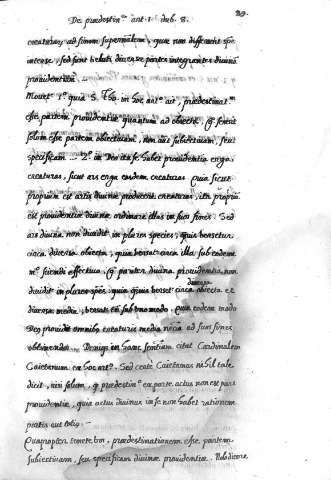 De prædestin.e art. 1. dub. 8.
creaturas, ad finem supernaturalem, quæ non differunt spe
interse, sed sunt veluti diversæ partes integrantes divinã
providentiam.
Movet.r 1.o quia S. Tho. in hoc art.o ait, prædestinat.m
esse partem providentiæ quantum ad obiecta,
solum esse partem obiectivam, non aut subiectivam, seu
specificam. 2.o in Deo ita se habet providentia erga
creaturas, sicut ars erga easdem creaturas. Quia sicut
proprium est artis divinæ producere creaturas, ita propriũ
est providentiæ divinæ ordinare illas in suos fines. Sed
ars divina non dividit.r in plures species, quia versetur
circa diversa obiecta, quia versat.r circa illa sub eodem
m.o faciendi effectus, g.o pariter divina providentia non
dividit.r in plures spẽs, quia versat.r circa diversa obiecta et
diversa media, versat.r eñ sub uno modo, quia eodem modo
Deo providet omnibus creaturis media ad suos fines
obtinendos. Deniq in hanc sentiam citat Cardinalem
Caietanum in hoc art.o. Sed certe Caietanus nihil tale
dicit, nisi solum, q prædestin.o ex parte actus non est pars
providentiæ, quia actus divinus in se non habet rationem
partis aut totius.
Quapropter tenete hoc, prædestinationem esse partem
subiectivam, seu specificam divinæ providentiæ.